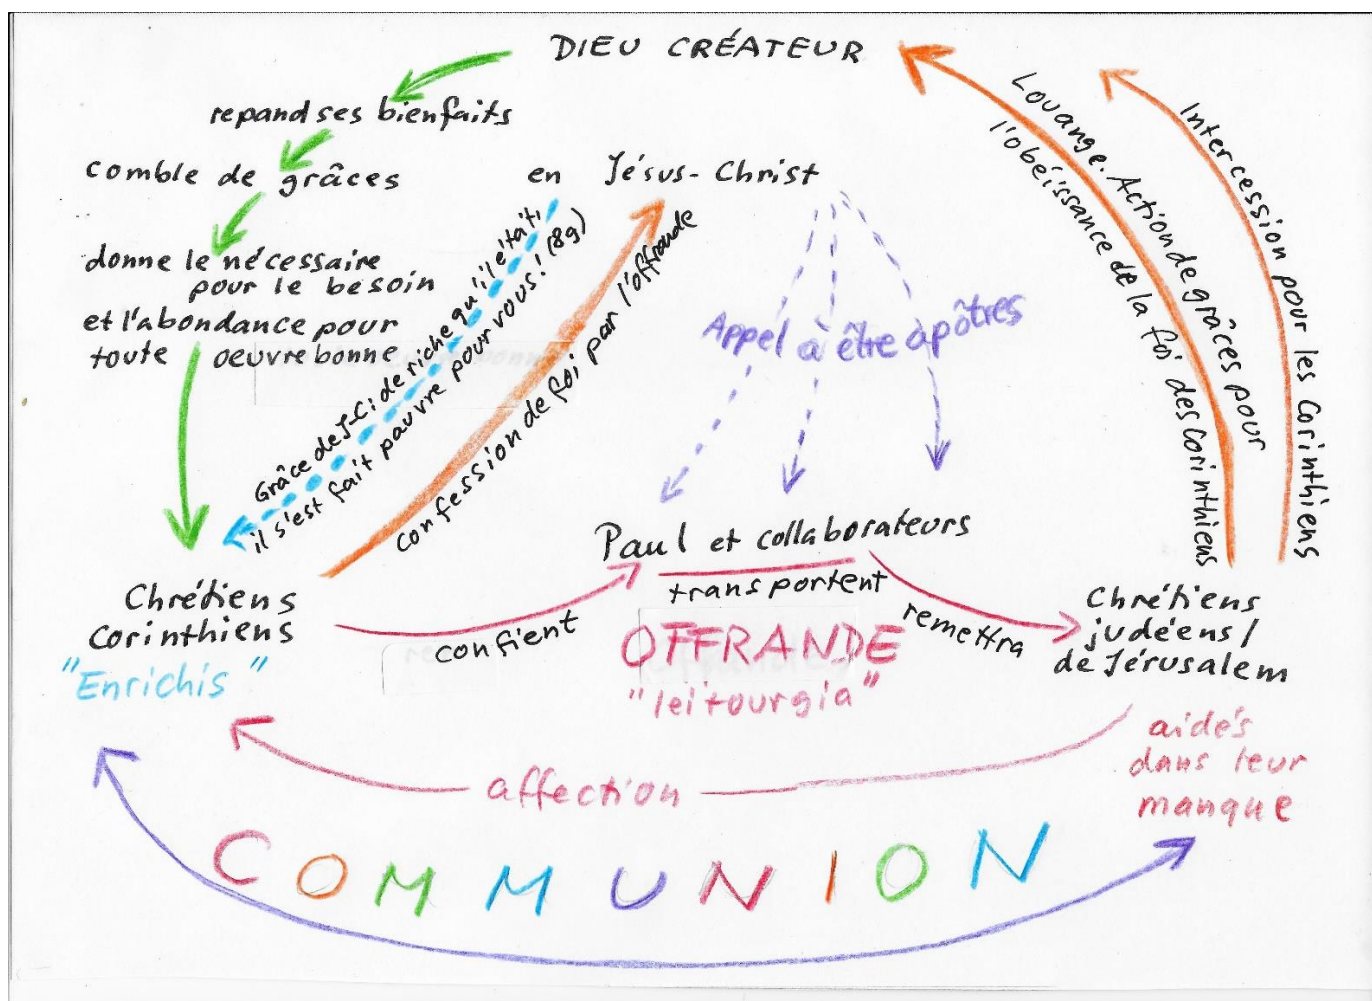 DIEU CRÉATEUR
repand ses bienfaits
comble de grâces
en Jésus-Christ
donne le nécessaire
pour le besoin
et l'abondance pour
toute oeuvre bonne
Grâce de J-C: de riche qu'il était,
il s'est fait pauvre pour vous! (89)
confession de foi par l'offrande
Appel à être apôtres
Louange. Action de grâces pour
l'obéissance de la foi des Corinthiens
Intercession pour les Corinthiens
Paul et collaborateurs
transportent
Chrétiens
Corinthiens
"Enrichis"
confient
OFFRANDE
"leitourgia"
remettra
Chrétiens
judéens /
de Jérusalem
aidés
dans leur
manque
affection
COMMUNION